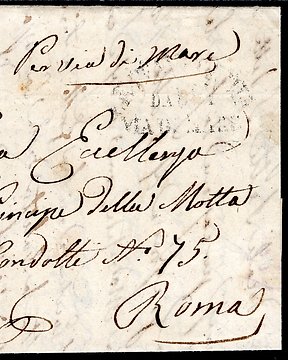 Per via di Mare
VIA DI MARE
a Eccellenza
rincipe della Motta
Condotti No. 75.
Roma